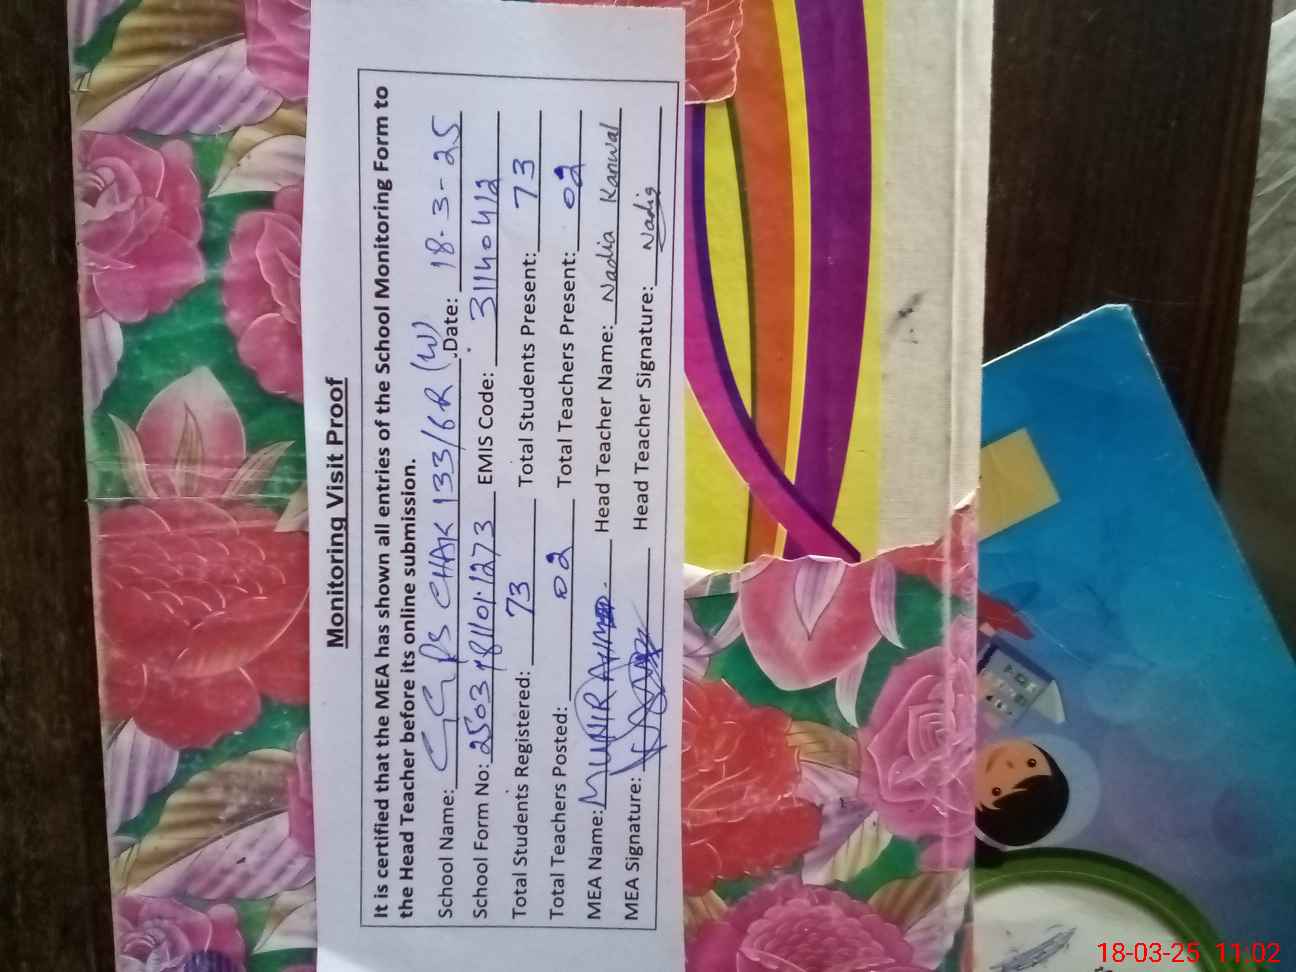 Monitoring Visit Proof
It is certified that the MEA has shown all entries of the School Monitoring Form to
the Head Teacher before its online submission.
School Name: GGPS CHAK 133/6R (W) Date: 18-3-25
School Form No: EMIS Code: 31140412
Total Students Registered: 73 Total Students Present: 73
Total Teachers Posted: 02 Total Teachers Present: 02
MEA Name: MUNIR AHMAD Head Teacher Name: Nadia Kanwal
MEA Signature: Head Teacher Signature: Nadia
18-03-25 11:02